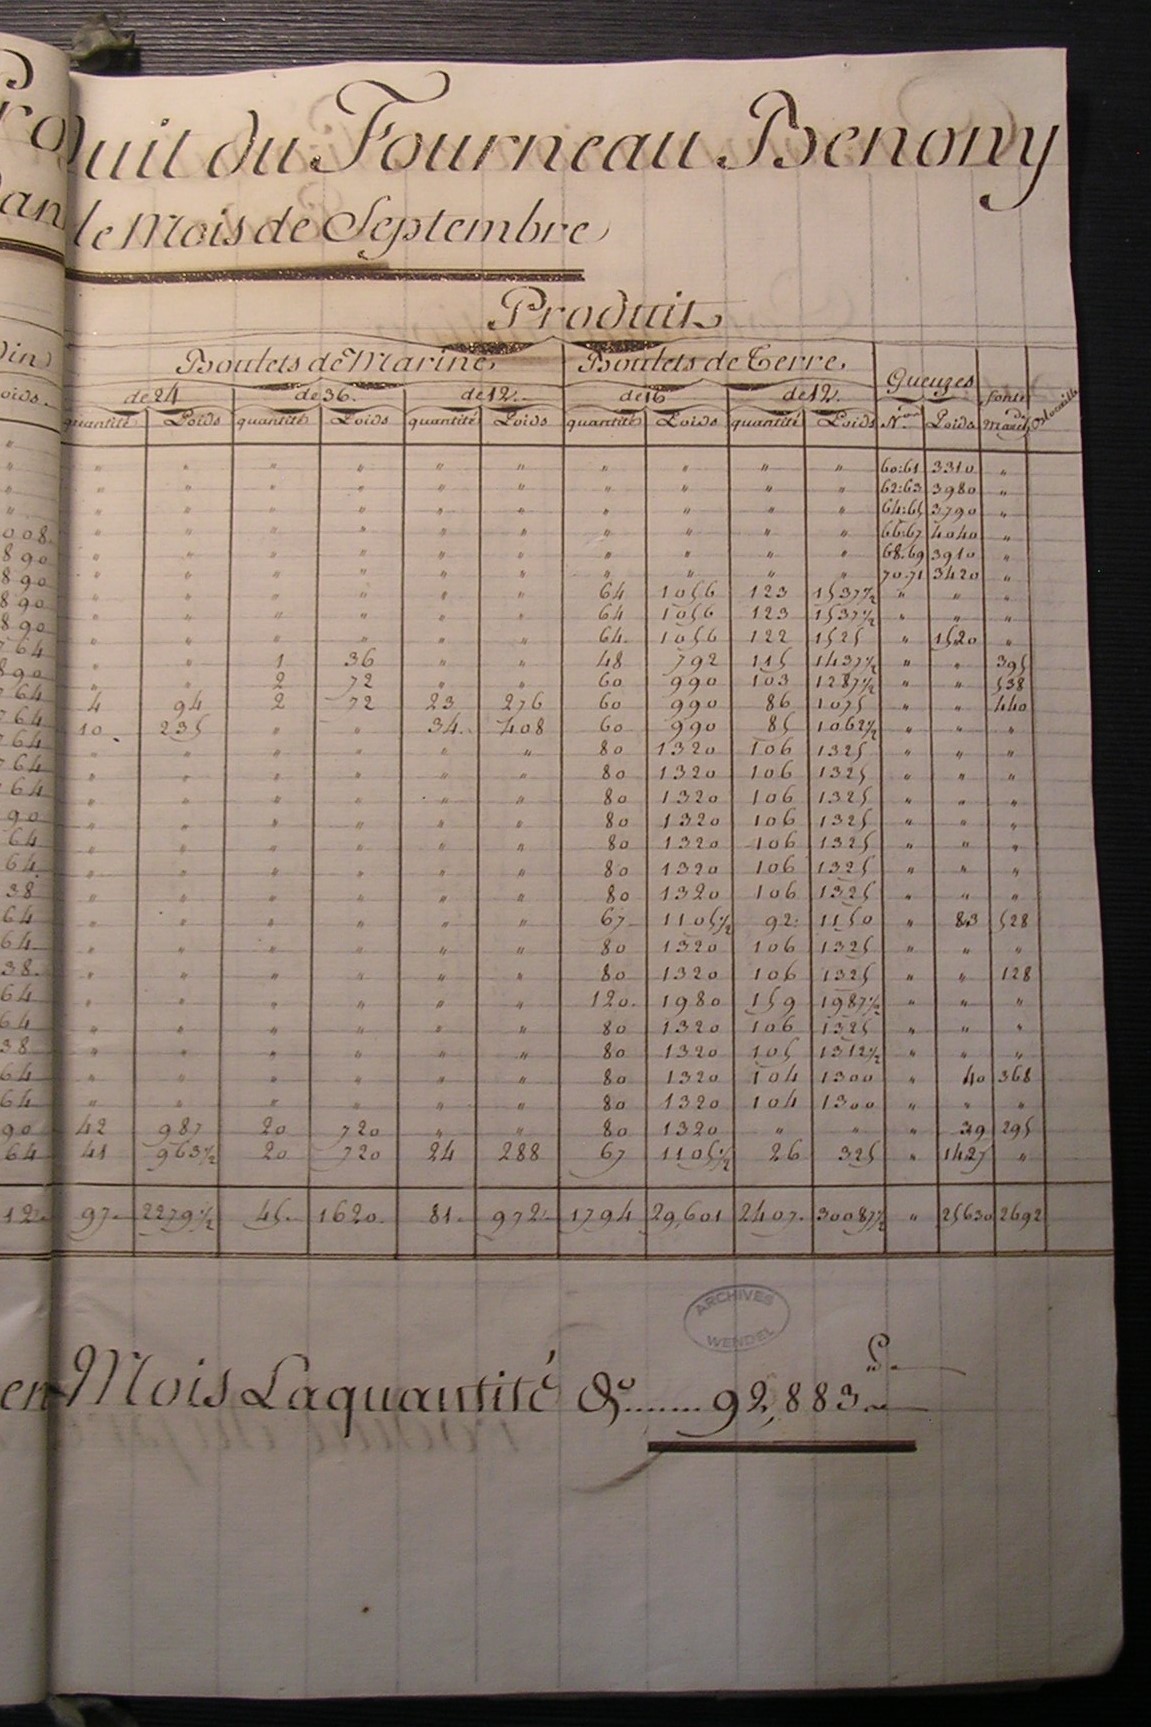 Produit du Fourneau Benony
Dans le Mois de Septembre
Produit
Boulets de Marine Boulets de Terre Gueuzes fonte
de 24 de 36. de 12. de 16 de 12.
quantité Poids quantité Poids quantité Poids quantité Poids quantité Poids N.os Poids
" " " " " " " " " " 60:61 3310 "
" " " " " " " " " " 62:63 3980 "
" " " " " " " " " " 64:65 3790 "
008. " " " " " " " " " " 66:67 4040 "
890 " " " " " " " " " " 68.69 3910 "
890 " " " " " " " " " " 70.71 3420 "
890 " " " " " " 64 1056 123 1537½ " " "
890 " " " " " " 64 1056 123 1537½ " " "
764 " " " " " " 64 1056 122 1525 " 1520 "
890 " " 1 36 " " 48 792 115 1437½ " " 395
764 " " 2 72 " " 60 990 103 1287½ " " 538
764 4 94 2 72 23 276 60 990 86 1075 " " 440
764 10 235 " " 34 408 60 990 85 1062½ " " "
764 " " " " " " 80 1320 106 1325 " " "
64 " " " " " " 80 1320 106 1325 " " "
90 " " " " " " 80 1320 106 1325 " " "
64 " " " " " " 80 1320 106 1325 " " "
64 " " " " " " 80 1320 106 1325 " " "
38 " " " " " " 80 1320 106 1325 " " "
64 " " " " " " 80 1320 106 1325 " " "
64 " " " " " " 67 1105½ 92 1150 " 83 528
38 " " " " " " 80 1320 106 1325 " " "
64 " " " " " " 80 1320 106 1325 " " 128
64 " " " " " " 120 1980 159 1987½ " " "
38 " " " " " " 80 1320 106 1325 " " "
64 " " " " " " 80 1320 105 1312½ " " "
64 " " " " " " 80 1320 104 1300 " 40 368
" " " " " " 80 1320 104 1300 " " "
90 42 987 20 720 " " 80 1320 " " " 39 295
64 41 963½ 20 720 24 288 67 1105½ 26 325 " 1427 "
12 97 2279½ 45 1620 81 972 1794 29,601 2407 30087½ " 25630 2692
ARCHIVES
WENDEL
en Mois La quantité de ....... 92,883